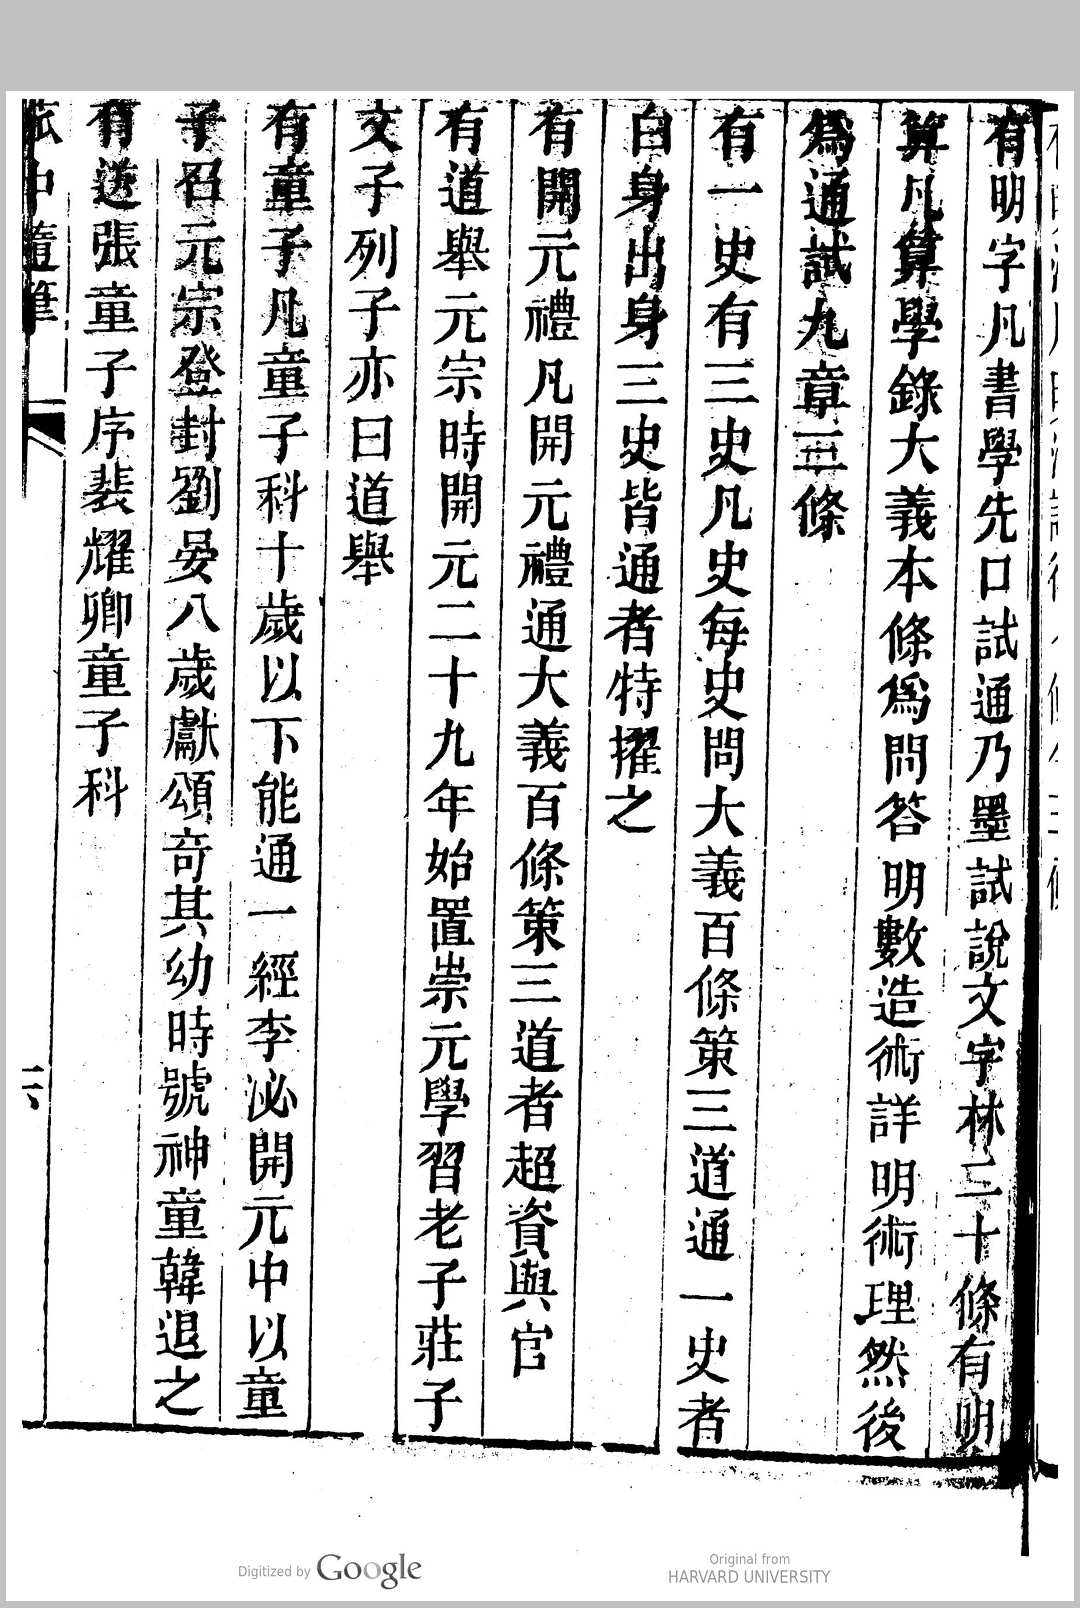 有明字凡書學先口試通乃墨試說文字林二十條有明
算凡算學錄大義本條爲問答明數造術詳明術理然後
爲通試九章三條
有一史有三史凡史每史問大義百條策三道通一史者
白身出身三史皆通者特擢之
有開元禮凡開元禮通大義百條策三道者超資與官
有道舉元宗時開元二十九年始置崇元學習老子莊子
文子列子亦曰道舉
有童子凡童子科十歲以下能通一經李泌開元中以童
子召元宗登封劉晏八歲獻頌奇其幼時號神童韓退之
有送張童子序裴耀卿童子科
中隨筆
六
Digitized by Google
Original from
HARVARD UNIVERSITY